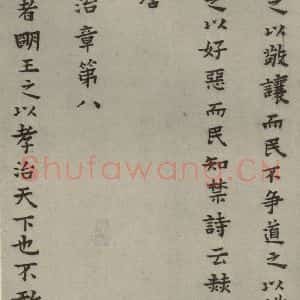 之以敬讓而民不争道之以
之以好惡而民知禁詩云赫
治章第八
者明王之以孝治天下也不敢
Shufawang.CN